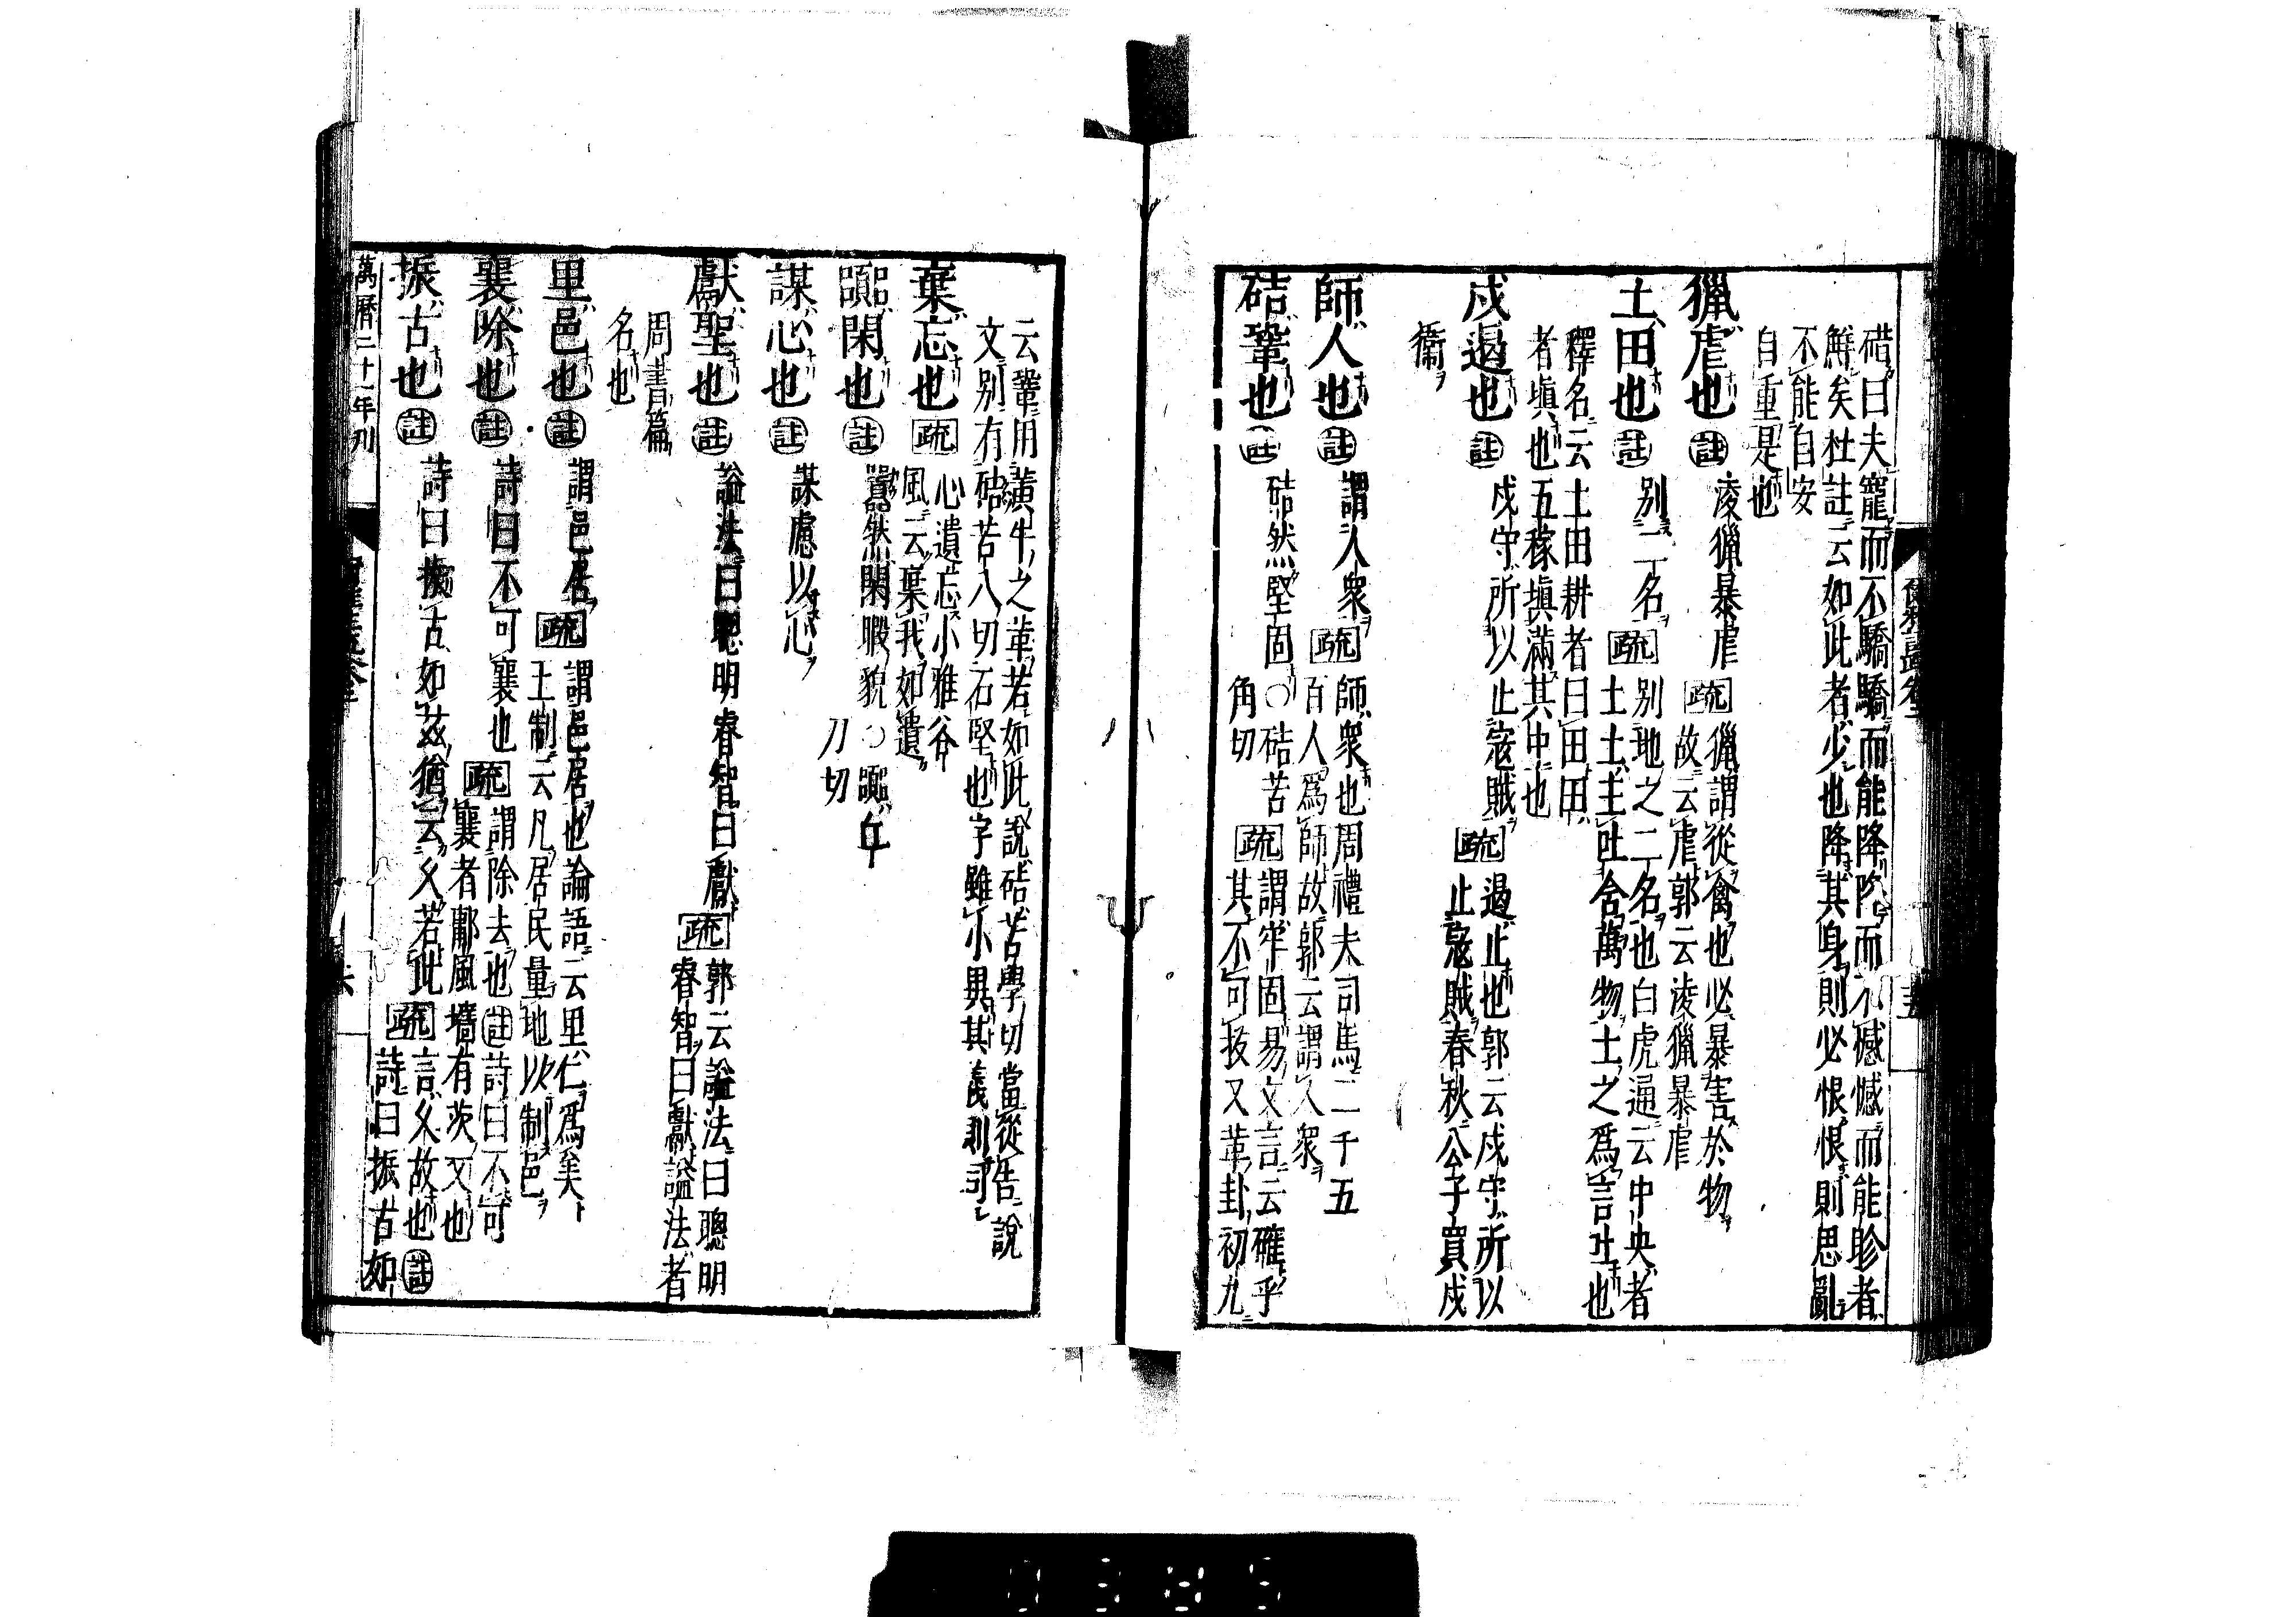 碏曰夫寵而不驕驕而能降降而不憾憾而能眕者
鮮矣杜註云如此者少也降其身則必恨恨則思亂
不能自安
自重是也
獵虐也註凌獵暴虐疏獵謂從禽也必暴害於物
故云虐郭云凌獵暴虐
土田也註別二名疏別地之二名也白虎通云中央者
土土主吐含萬物土之爲言吐也
釋名云土田耕者曰田田
者塡也五稼塡滿其中也
戍遏也註戍守所以止寇賊疏遏止也郭云戍守所以
止寇賊春秋公子買戍
衞
師人也註謂人衆疏師衆也周禮夫司馬二千五
百人爲師故郭云謂人衆
硈鞏也註硈然堅固〇硈苦角切疏謂牢固易文言云確乎
其不可拔又革卦初九
云鞏用黃牛之革若如此說硈苦學切當從告說
文別有硈苦八切石堅也字雖小異其義則同
棄忘也疏心遺忘小雅谷
風云棄我如遺
嚻閑也註嚻然閑暇貌〇嚻
刀切
謀心也註謀慮以心
獻聖也註謚法曰聰明睿智曰獻疏郭云謚法曰聰明
睿智曰獻謚法者
周書篇
名也
里邑也註謂邑居疏謂邑居也論語云里仁爲矣
王制云凡居民量地以制邑
襄除也註詩曰不可襄也疏謂除去也註詩曰不可
襄者鄘風墻有茨文也
振古也註詩曰振古如茲猶云久若此疏言久故也註
詩曰振古如
萬曆二十一年刊